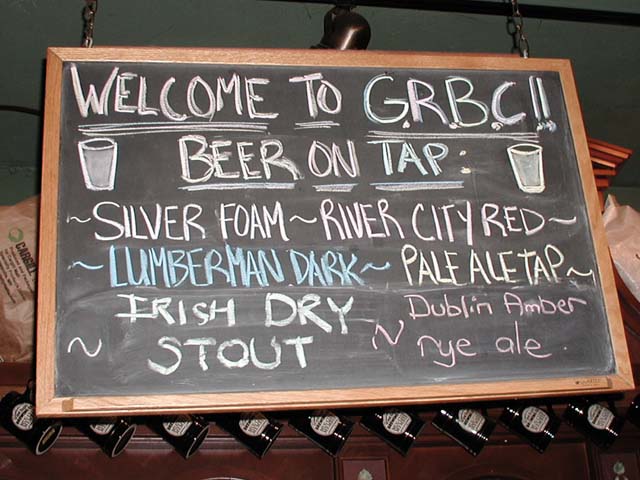 WELCOME TO G.R.B.C!!
BEER ON TAP:
~SILVER FOAM~RIVER CITY RED~
~LUMBERMAN DARK~ PALE ALE TAP~
IRISH DRY Dublin Amber
~ STOUT ~ rye ale.